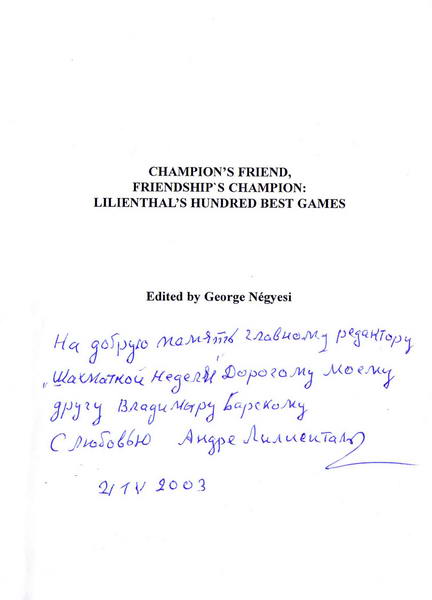 CHAMPION'S FRIEND,
FRIENDSHIP`S CHAMPION:
LILIENTHAL'S HUNDRED BEST GAMES
Edited by George Négyesi
На добрую память главному редактору
„Шахматной Недели" Дорогому Моему
другу Владимиру Барскому
С любовью Андре Лилиенталь
2/IV 2003